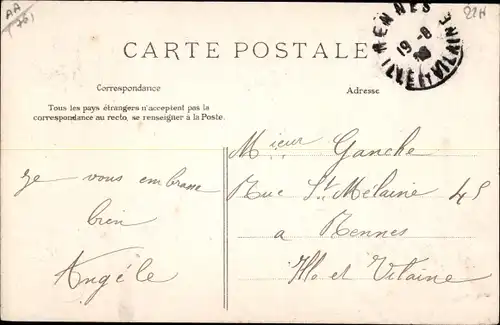 AA
22H
RENNES
19 -8
ILLE ET VILAINE
CARTE POSTALE
Correspondance
Tous les pays étrangers n'acceptent pas la
correspondance au recto, se renseigner à la Poste.
je vous embrasse
bien
Angèle
Adresse
Mieur Ganche
Rue St Mélaine 45
a Rennes
Ille et Vilaine